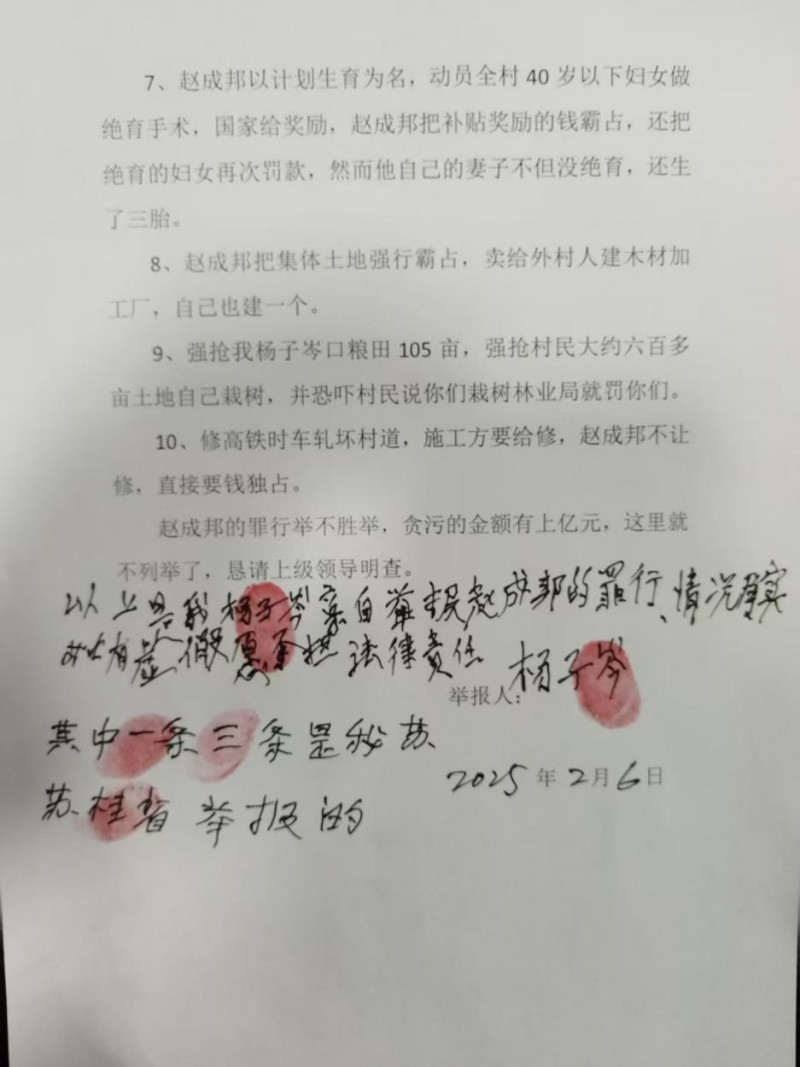 7、赵成邦以计划生育为名，动员全村 40 岁以下妇女做
绝育手术，国家给奖励，赵成邦把补贴奖励的钱霸占，还把
绝育的妇女再次罚款，然而他自己的妻子不但没绝育，还生
了三胎。
8、赵成邦把集体土地强行霸占，卖给外村人建木材加
工厂，自己也建一个。
9、强抢我杨子岑口粮田 105 亩，强抢村民大约六百多
亩土地自己栽树，并恐吓村民说你们栽树林业局就罚你们。
10、修高铁时车轧坏村道，施工方要给修，赵成邦不让
修，直接要钱独占。
赵成邦的罪行举不胜举，贪污的金额有上亿元，这里就
不列举了，恳请上级领导明查。
以上是我杨子岑亲自举报赵成邦的罪行、情况属实
如有虚假愿承担法律责任 杨子岑
举报人：
其中一条三条是
2025 年 2 月 6 日
苏桂 举报的